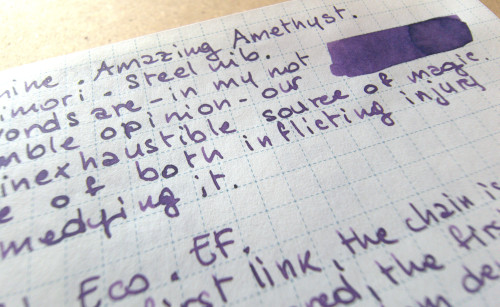 mine. Amazing Amethyst.
imori. Steel nib.
ords are - in my not
mble opinion - our
inexhaustible source of magic.
e of both inflicting injury
medying it.
Eco. EF.
irst link, the chain is
red, the firs
n de